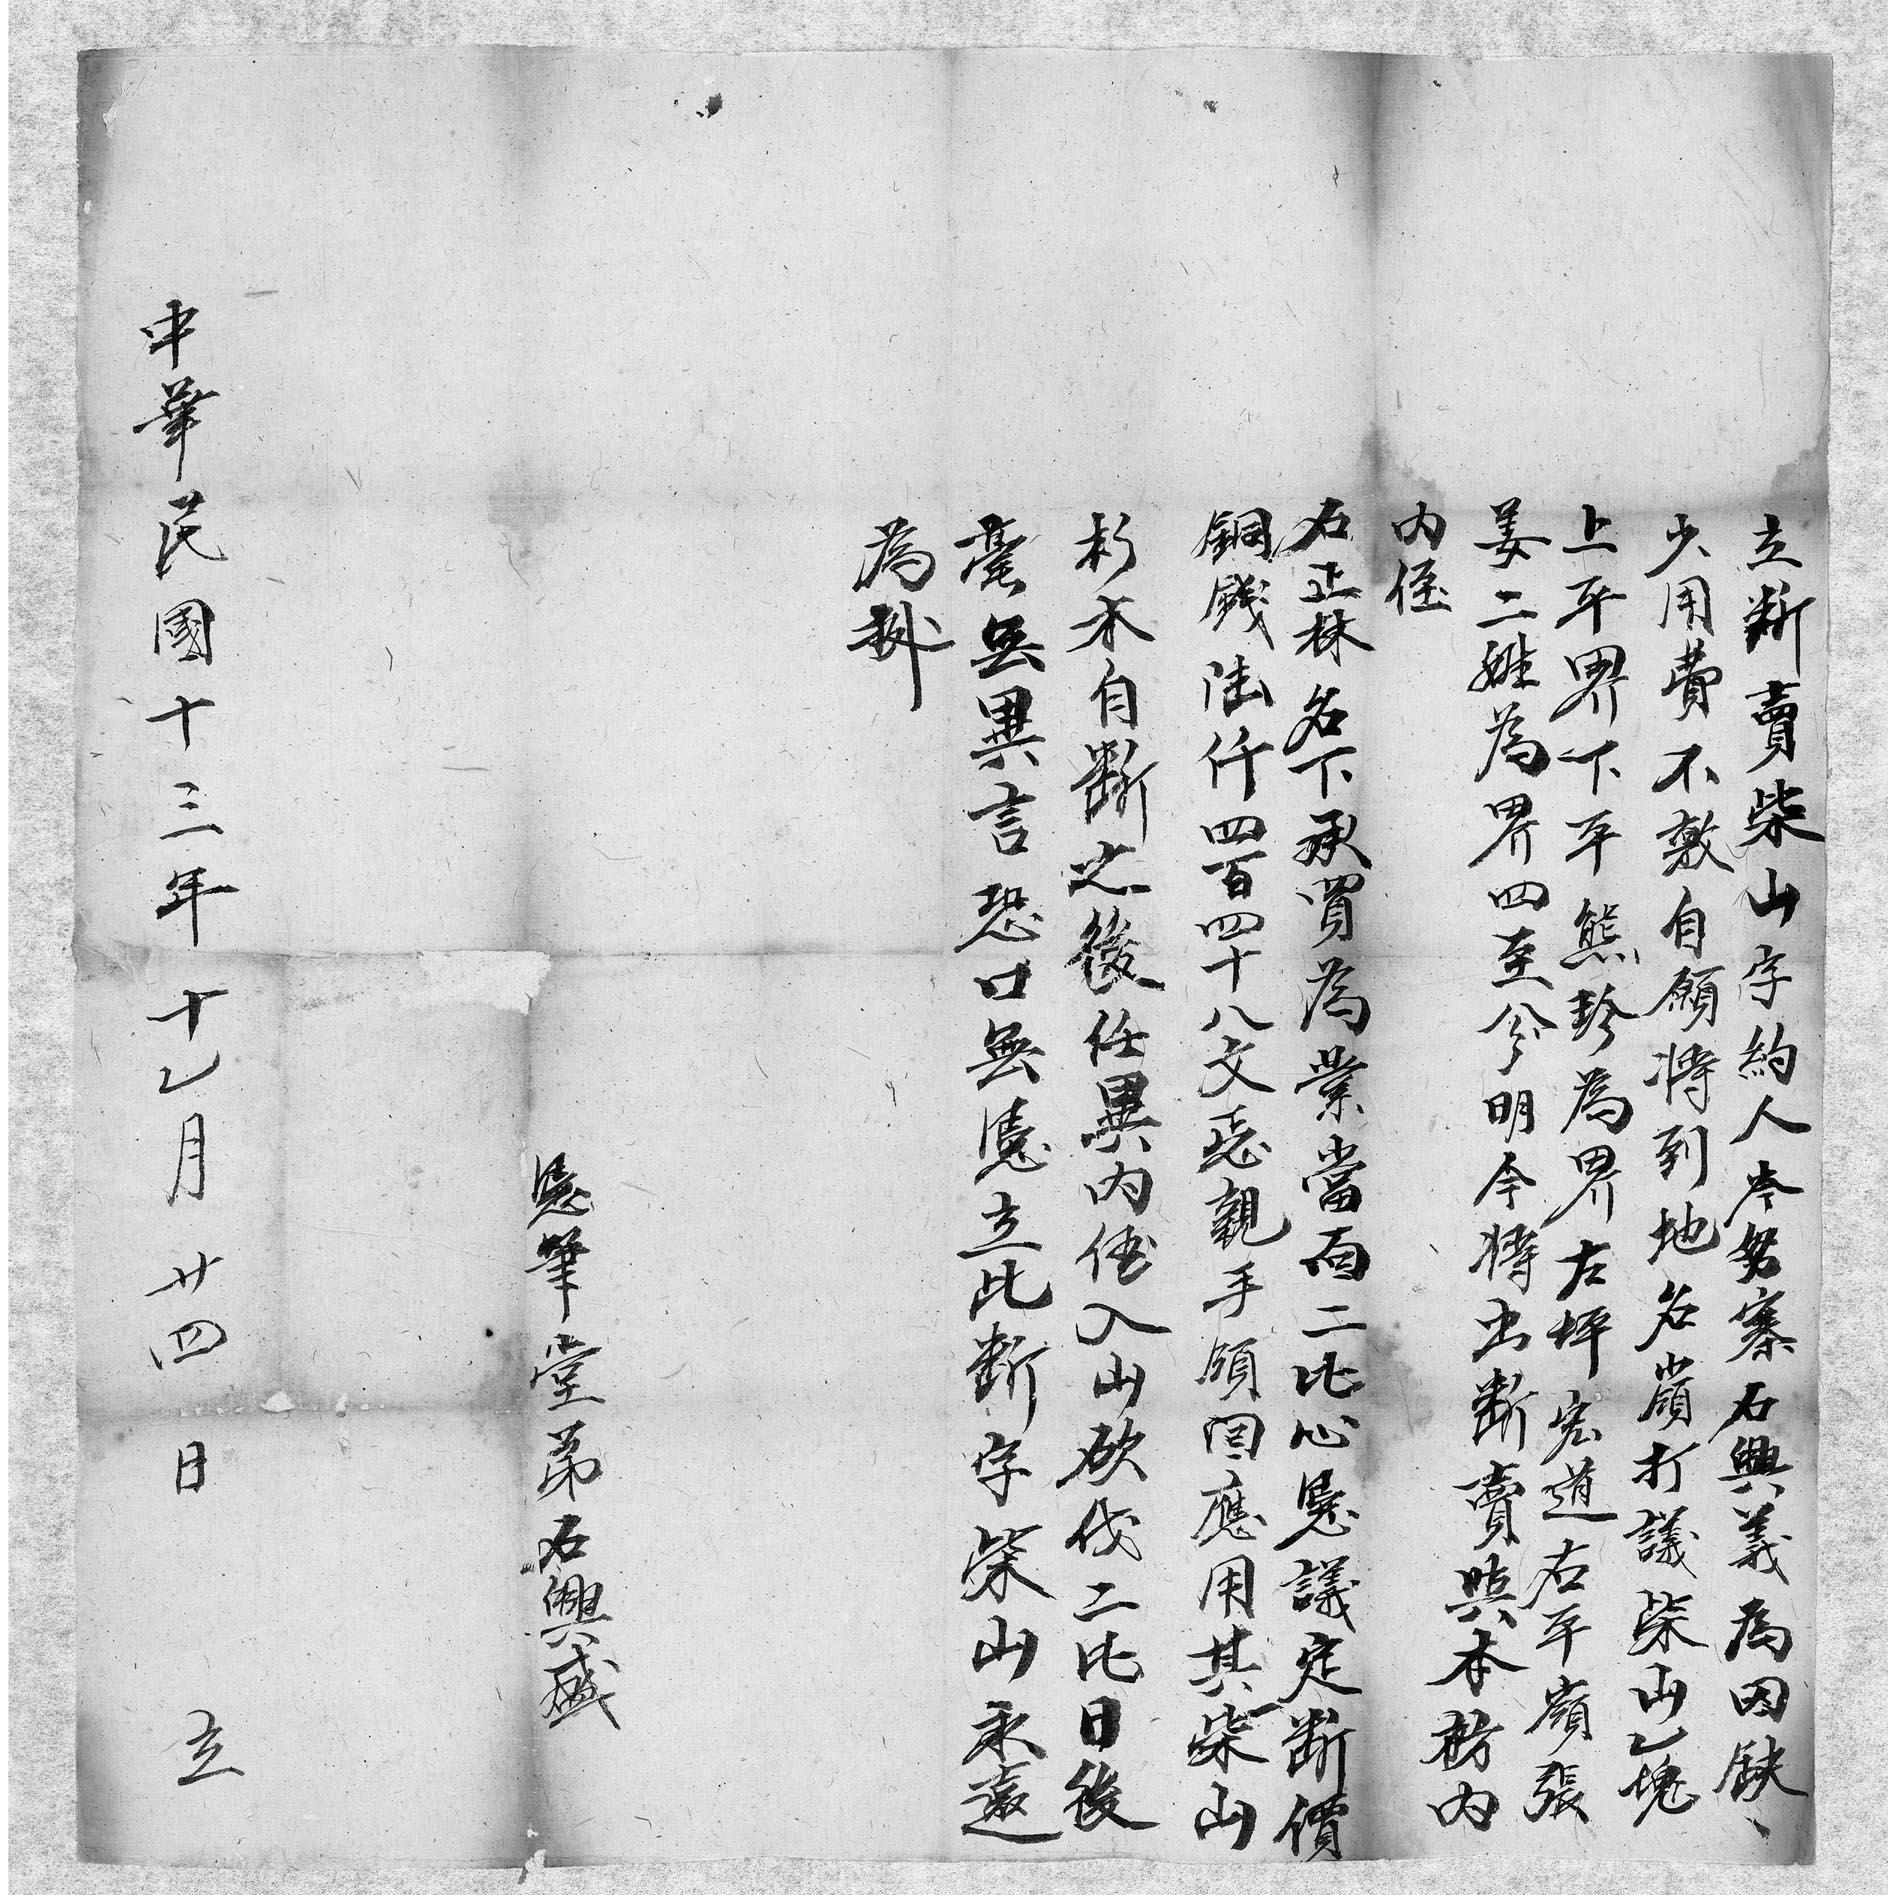 立斷賣柴山字約人岑努寨石興義為因缺、
少用費不敷自願将到地名嶺打議柴山乙塊
上平界下平熊珍為界左坪宏道右平嶺張
姜二姓為界四至分明今將出斷賣與本榜内
内侄
石正林名下承買為業當面二比心憑議定斷價
銅錢陆仟四百四十八文憑親手領回應用其柴山
杉木自斷之後任異内侄入山砍伐二比日後
毫無異言恐口無憑立此斷字柴山永遠
為㨿
憑筆堂弟石興盛
中華民國十三年十乙月廿四日立